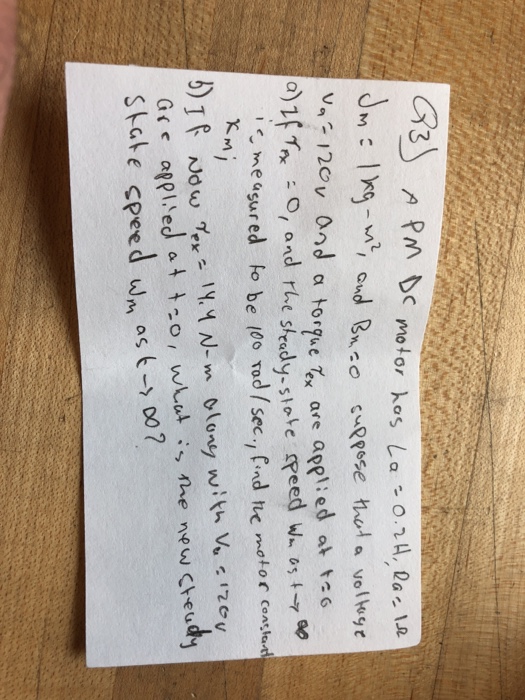 Q3) A PM DC motor has La = 0.2H, Ra = 1Ω
Jm = 1 kg-m², and Bm=0 suppose that a voltage
Va = 120V and a torque τex are applied at t=0
a) If τex = 0, and the steady-state speed Wm as t→∞
is measured to be 100 rad/sec, find the motor constant
Km;
b) If Now τex = 14.4 N-m along with Va = 120V
are applied at t=0, what is the new steady
state speed Wm as t→∞?